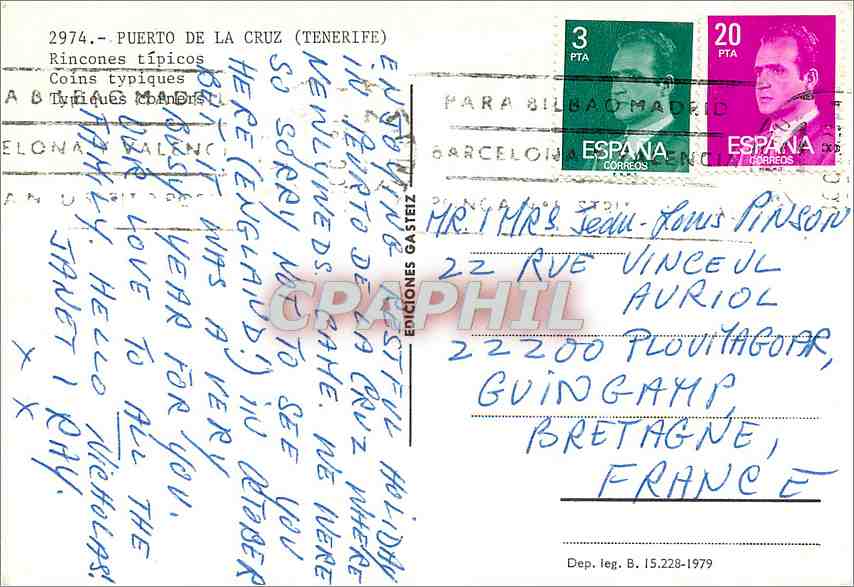 2974.- PUERTO DE LA CRUZ (TENERIFE)
Rincones típicos
Coins typiques
Typiques corners
ENJOYING RESTFUL HOLIDAY
IN PUERTO DE LA CRUZ WHERE
NEWLWEDS CAME. WE WERE
SO SORRY NOT TO SEE YOU
HERE (ENGLAND!) IN OCTOBER
BUT IT WAS A VERY
BUSY YEAR FOR YOU.
OUR LOVE TO ALL THE
FAMILY. HELLO NICHOLAS!
JANET & RAY.
X X X
EDICIONES GASTEIZ
3
PTA
ESPAÑA
CORREOS
20
PTA
ESPAÑA
CORREOS
PARA BILBAO MADRID
BARCELONA VALENCIA
PONGA
A BILBAO MADRID
ELONA VALENC
MR. & MRS. Jean-Louis PINSON
22 RUE VINCEUL
AURIOL
22200 PLOUMAGOAR,
GUINGAMP,
BRETAGNE,
FRANCE
Dep. leg. B. 15.228-1979
CPAPHIL